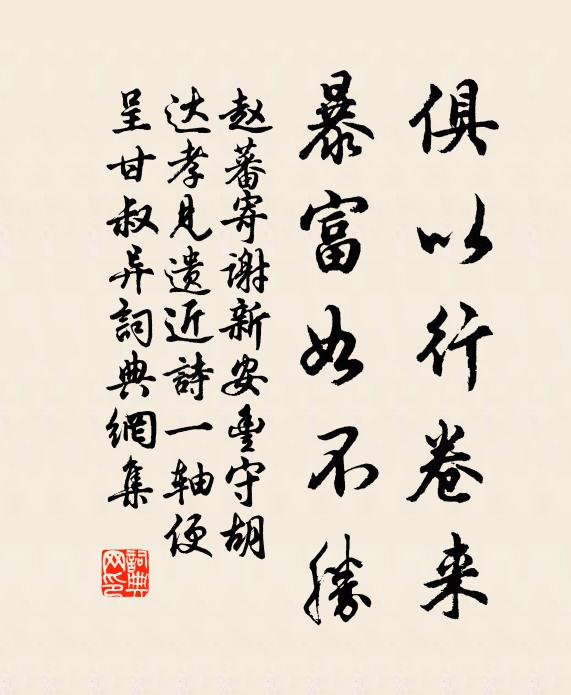 俱以行卷来
暴富如不勝
赵蕃寄谢新安豊守胡
达孝見遗近詩一轴便
呈甘叔异詞典網集
詞典网印